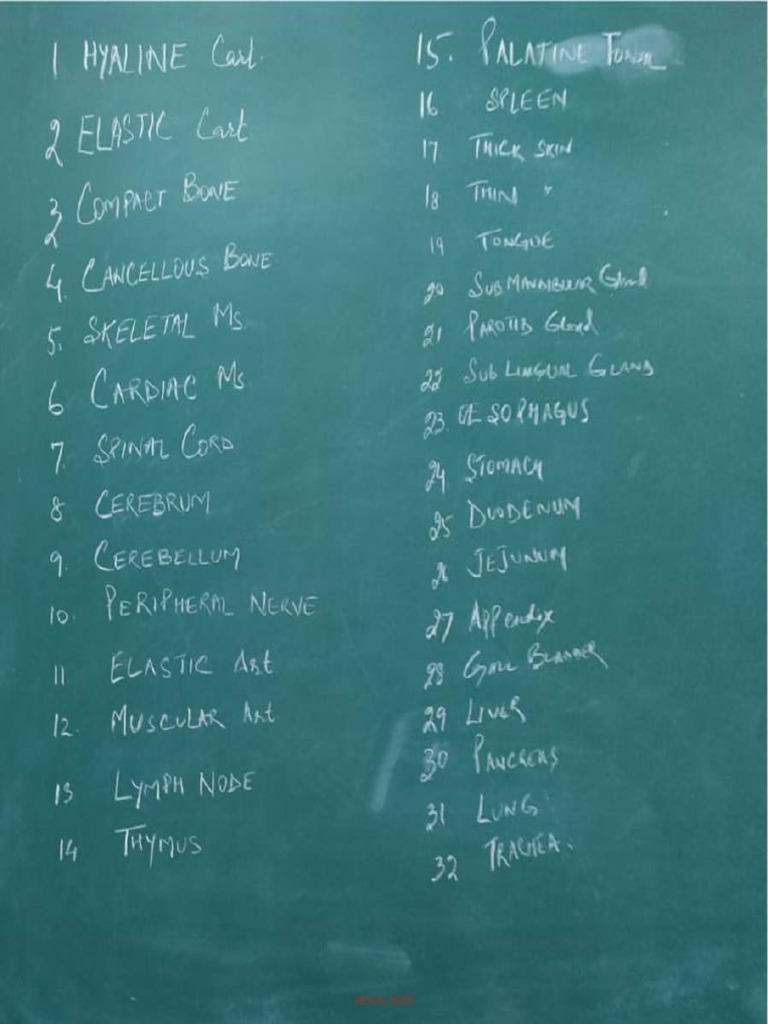 1 HYALINE Cart.
2 ELASTIC Cart
3 COMPACT BONE
4. CANCELLOUS BONE
5. SKELETAL Ms
6 CARDIAC Ms
7. SPINAL CORD
8 CEREBRUM
9. CEREBELLUM
10. PERIPHERAL NERVE
11 ELASTIC Art
12. MUSCULAR Art
13 LYMPH NODE
14 THYMUS
15. PALATINE
16 SPLEEN
17 THICK SKIN
18 THIN "
19 TONGUE
20 SUBMANDIBULAR Gland
21 PAROTID Gland
22 SUB LINGUAL GLAND
23. OESOPHAGUS
24 STOMACH
25 DUODENUM
26 JEJUNUM
27 Appendix
28 GALL BLADDER
29 LIVER
30 PANCREAS
31 LUNG
32 TRACHEA.